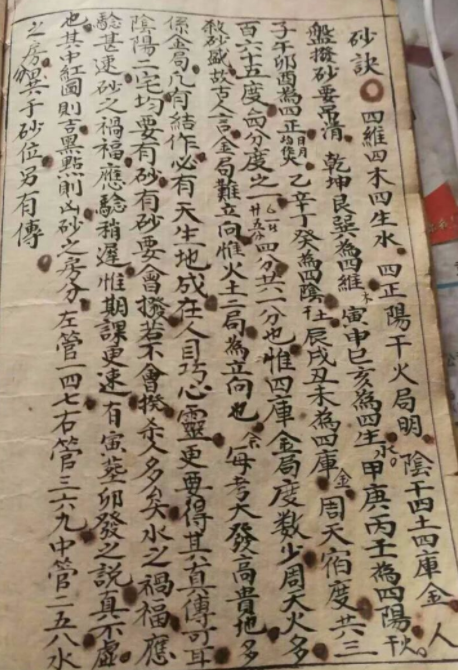 砂訣 四維四木四生水 四正陽干火局明 陰干四土四庫金 人
盤撥砂要吊清 乾坤艮巽為四維木寅申巳亥為四生水甲庚丙壬為四陽干火
子午卯酉為四正日月均焦乙辛丁癸為四陰土辰戌丑未為四庫金周天宿度共三
百六十五度四分度之一 四分共二分也惟四庫金局度數少周天火多
殺砂盛故古人言金局難立向惟火土二局為立向也 每考大發高貴地多
係金局凡有結作必有天生地成在人目巧心靈更要得其真傳可耳
陰陽二宅均要有砂有砂要會撥若不會撥殺人多矣水之禍福應
驗甚速砂之禍福應驗稍遲惟期課更速有寅葬卯發之說真不虛
也其中紅圈則吉黑點則凶砂之房分左管一四七右管三六九中管二五八水
之房異于砂位另有傳